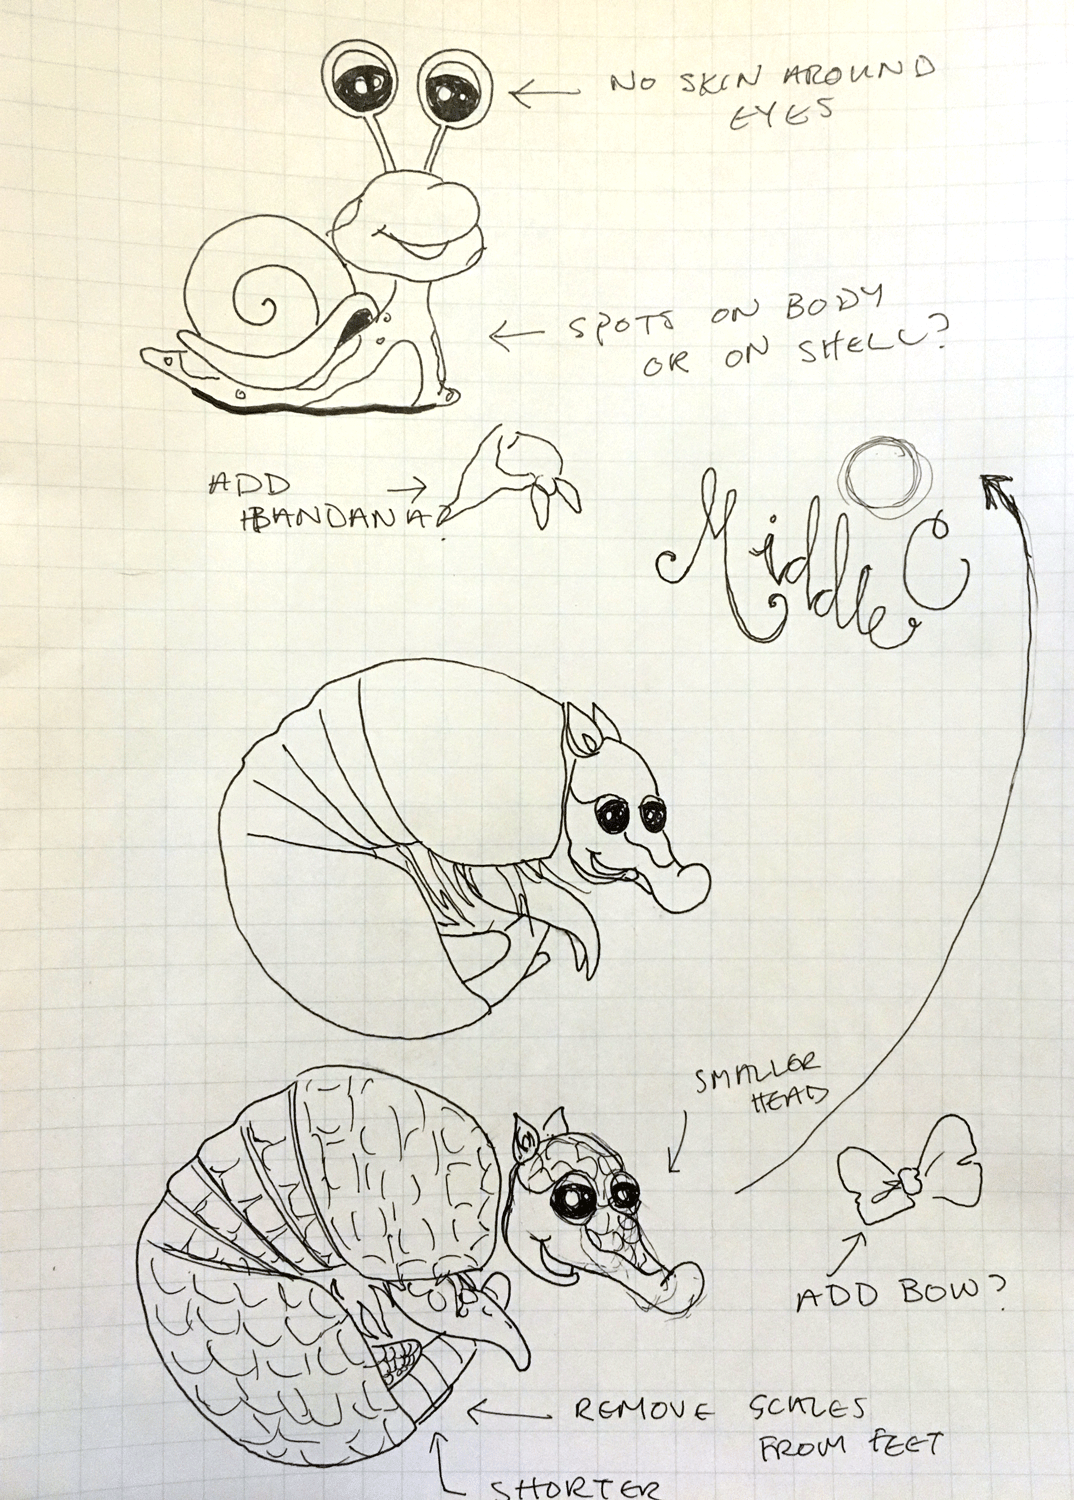 NO SKIN AROUND
EYES
SPOTS ON BODY
OR ON SHELL?
ADD
BANDANA?
Middle C
SMALLER
HEAD
ADD BOW?
REMOVE SCALES
FROM FEET
SHORTER